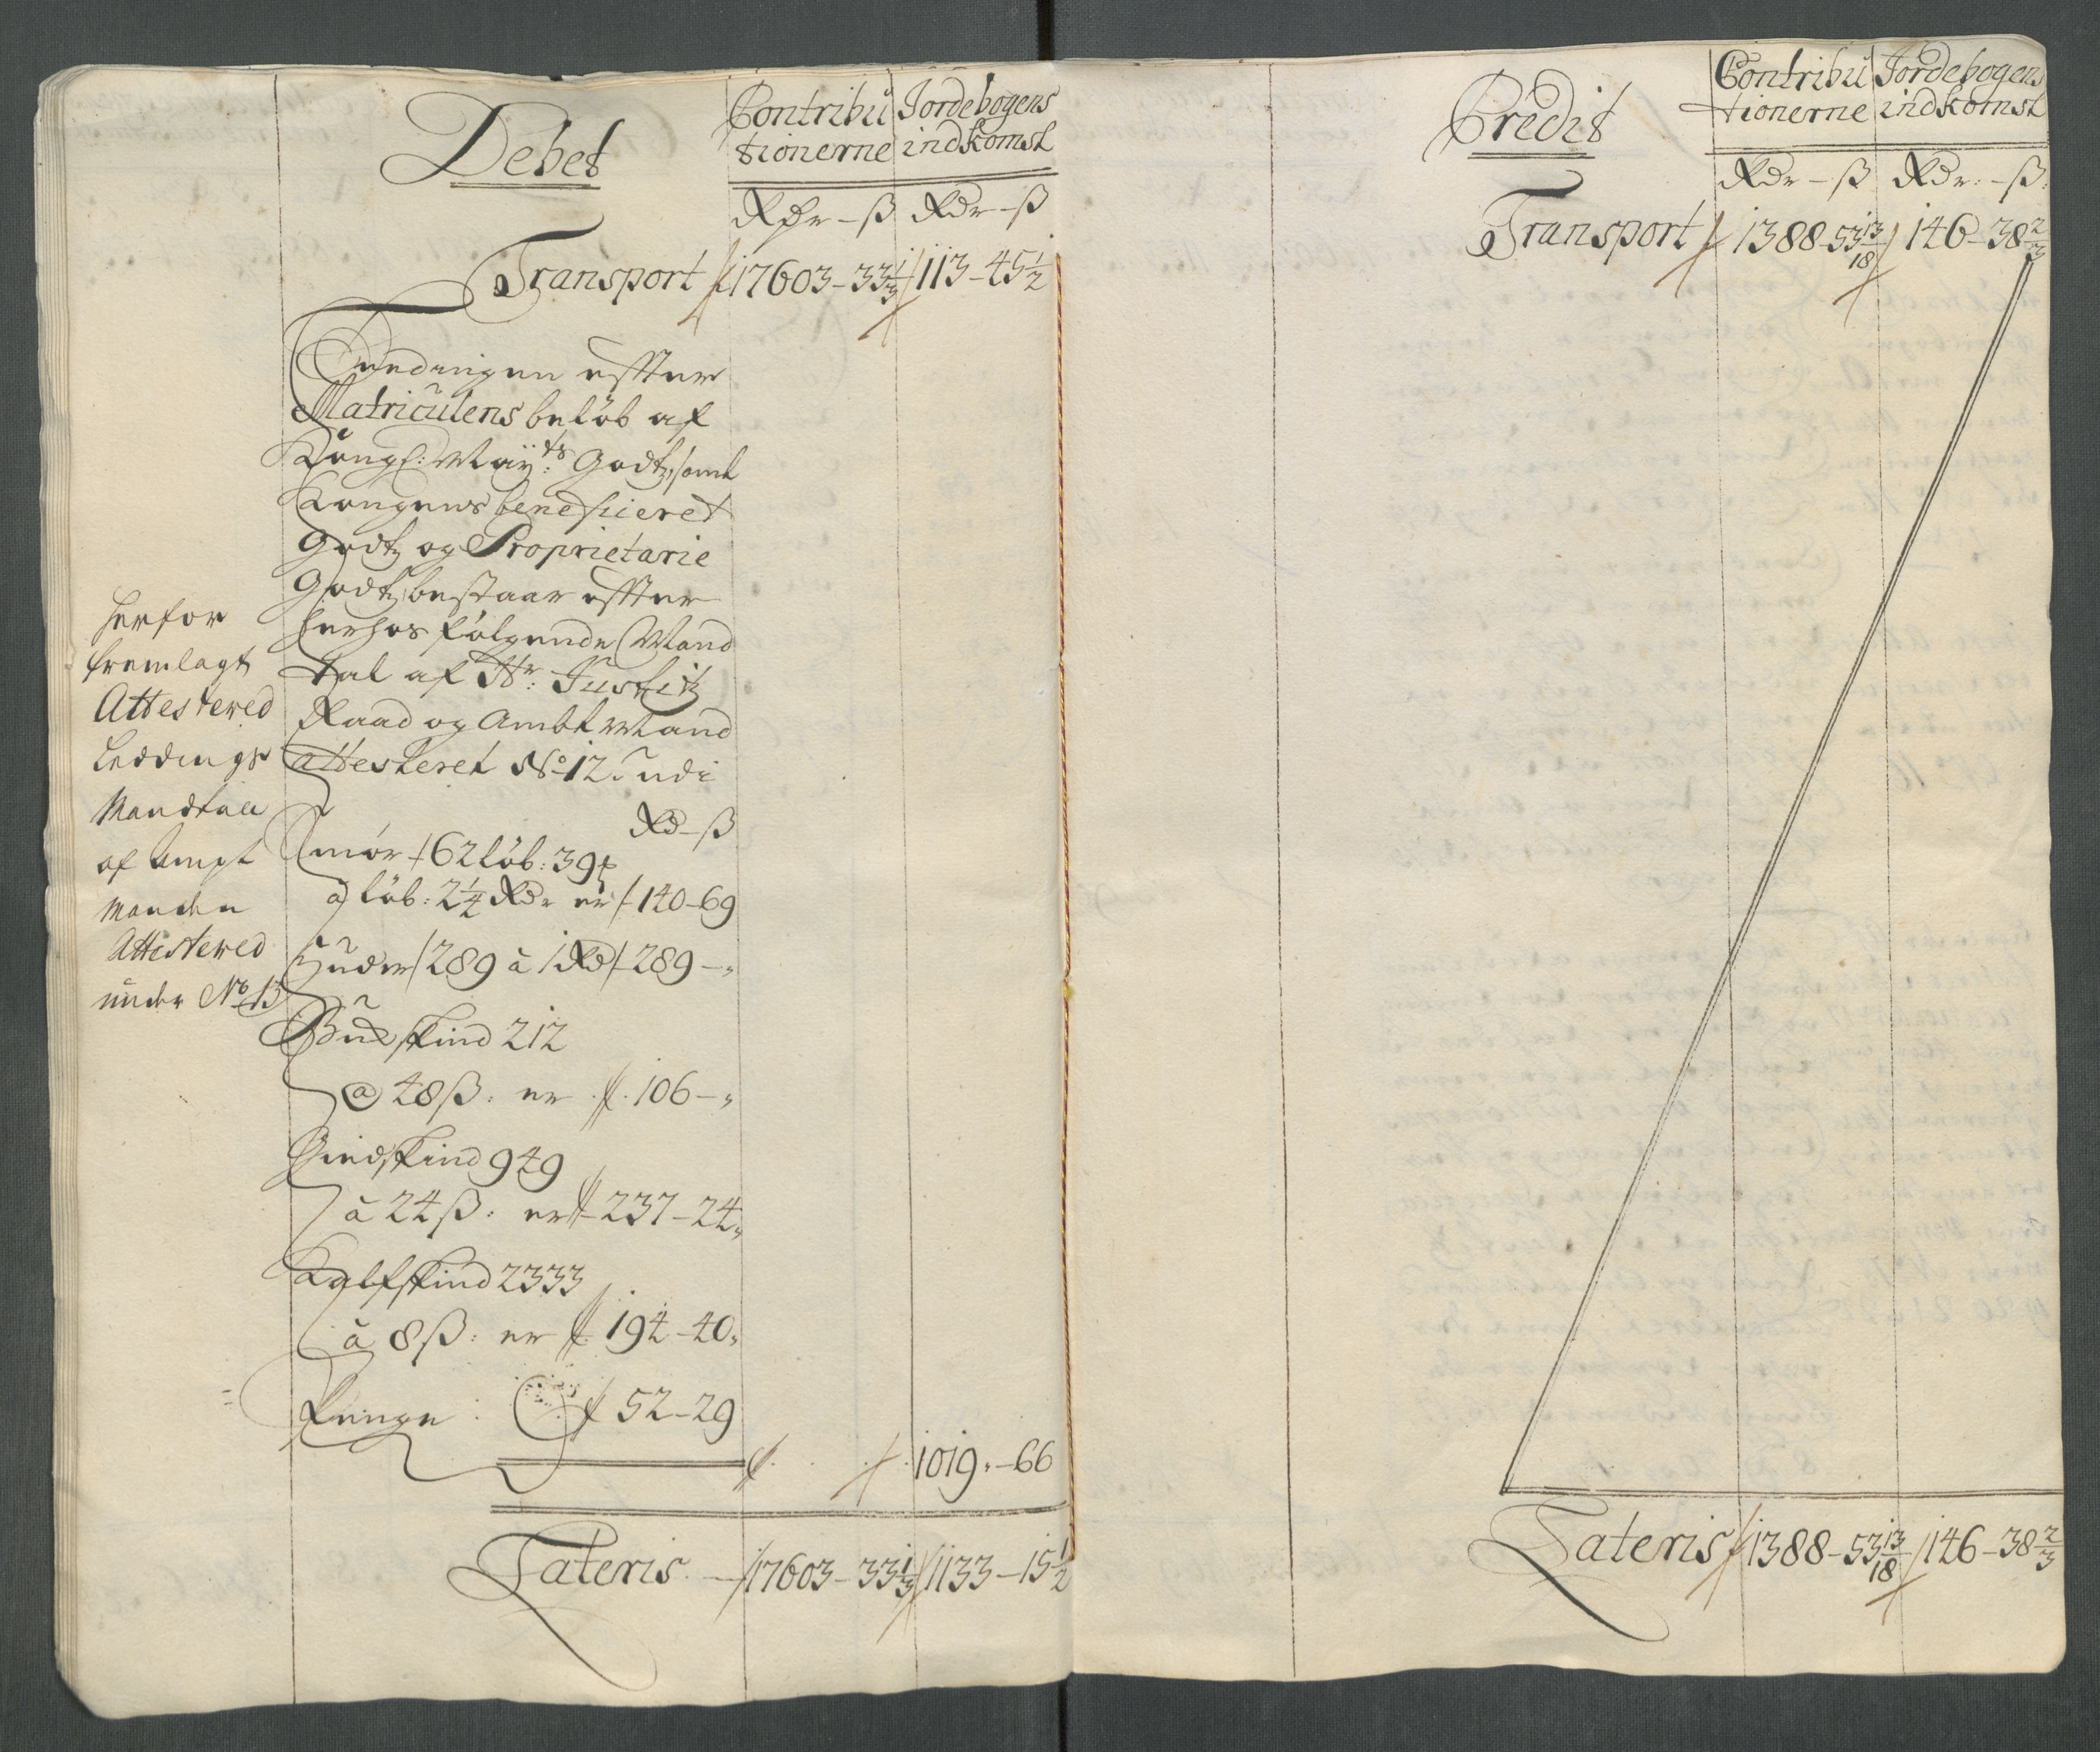 Debet
Contribu
tionerne
Jordebogens
indkomst
Rdr - ß
Rdr - ß
Transport 17603 - 33 1/3
113 - 45 1/2
Leedingen effter
Matriculens beløb af
Kongl: Mayts: Godtz, samt
Kongens beneficieret
Godtz og Proprietarie
Godtz, bestaar effter
herhos følgende Mand
tal af Hr: Justitz
Raad og Ambtmand
attesteret No 12. udi
Rd - ß
Smør 62 løb: 39
a løb: 2 1/4 Rdr er 140 - 69
Huder 289 à 1 Rd 289 - "
Buckskind 212
@ 48 ß: er 106 - "
Giedskind 949
à 24 ß: er 237 - 24
Kalfskind 2333
à 8 ß: er 194 - 40
Penge 52 - 29
1019 - 66
Lateris 17603 - 33 1/3
1133 - 15 1/2
herfor
fremlagt
Attestered
Leddings
Mandtall
af Ampt
Manden
Attestered
under No 13
Credit
Contribu
tionerne
Jordebogens
indkomst
Rdr - ß
Rdr: - ß:
Transport 1388 - 53 13/18
146 - 38 2/3
Lateris 1388 - 53 13/18
146 - 38 2/3